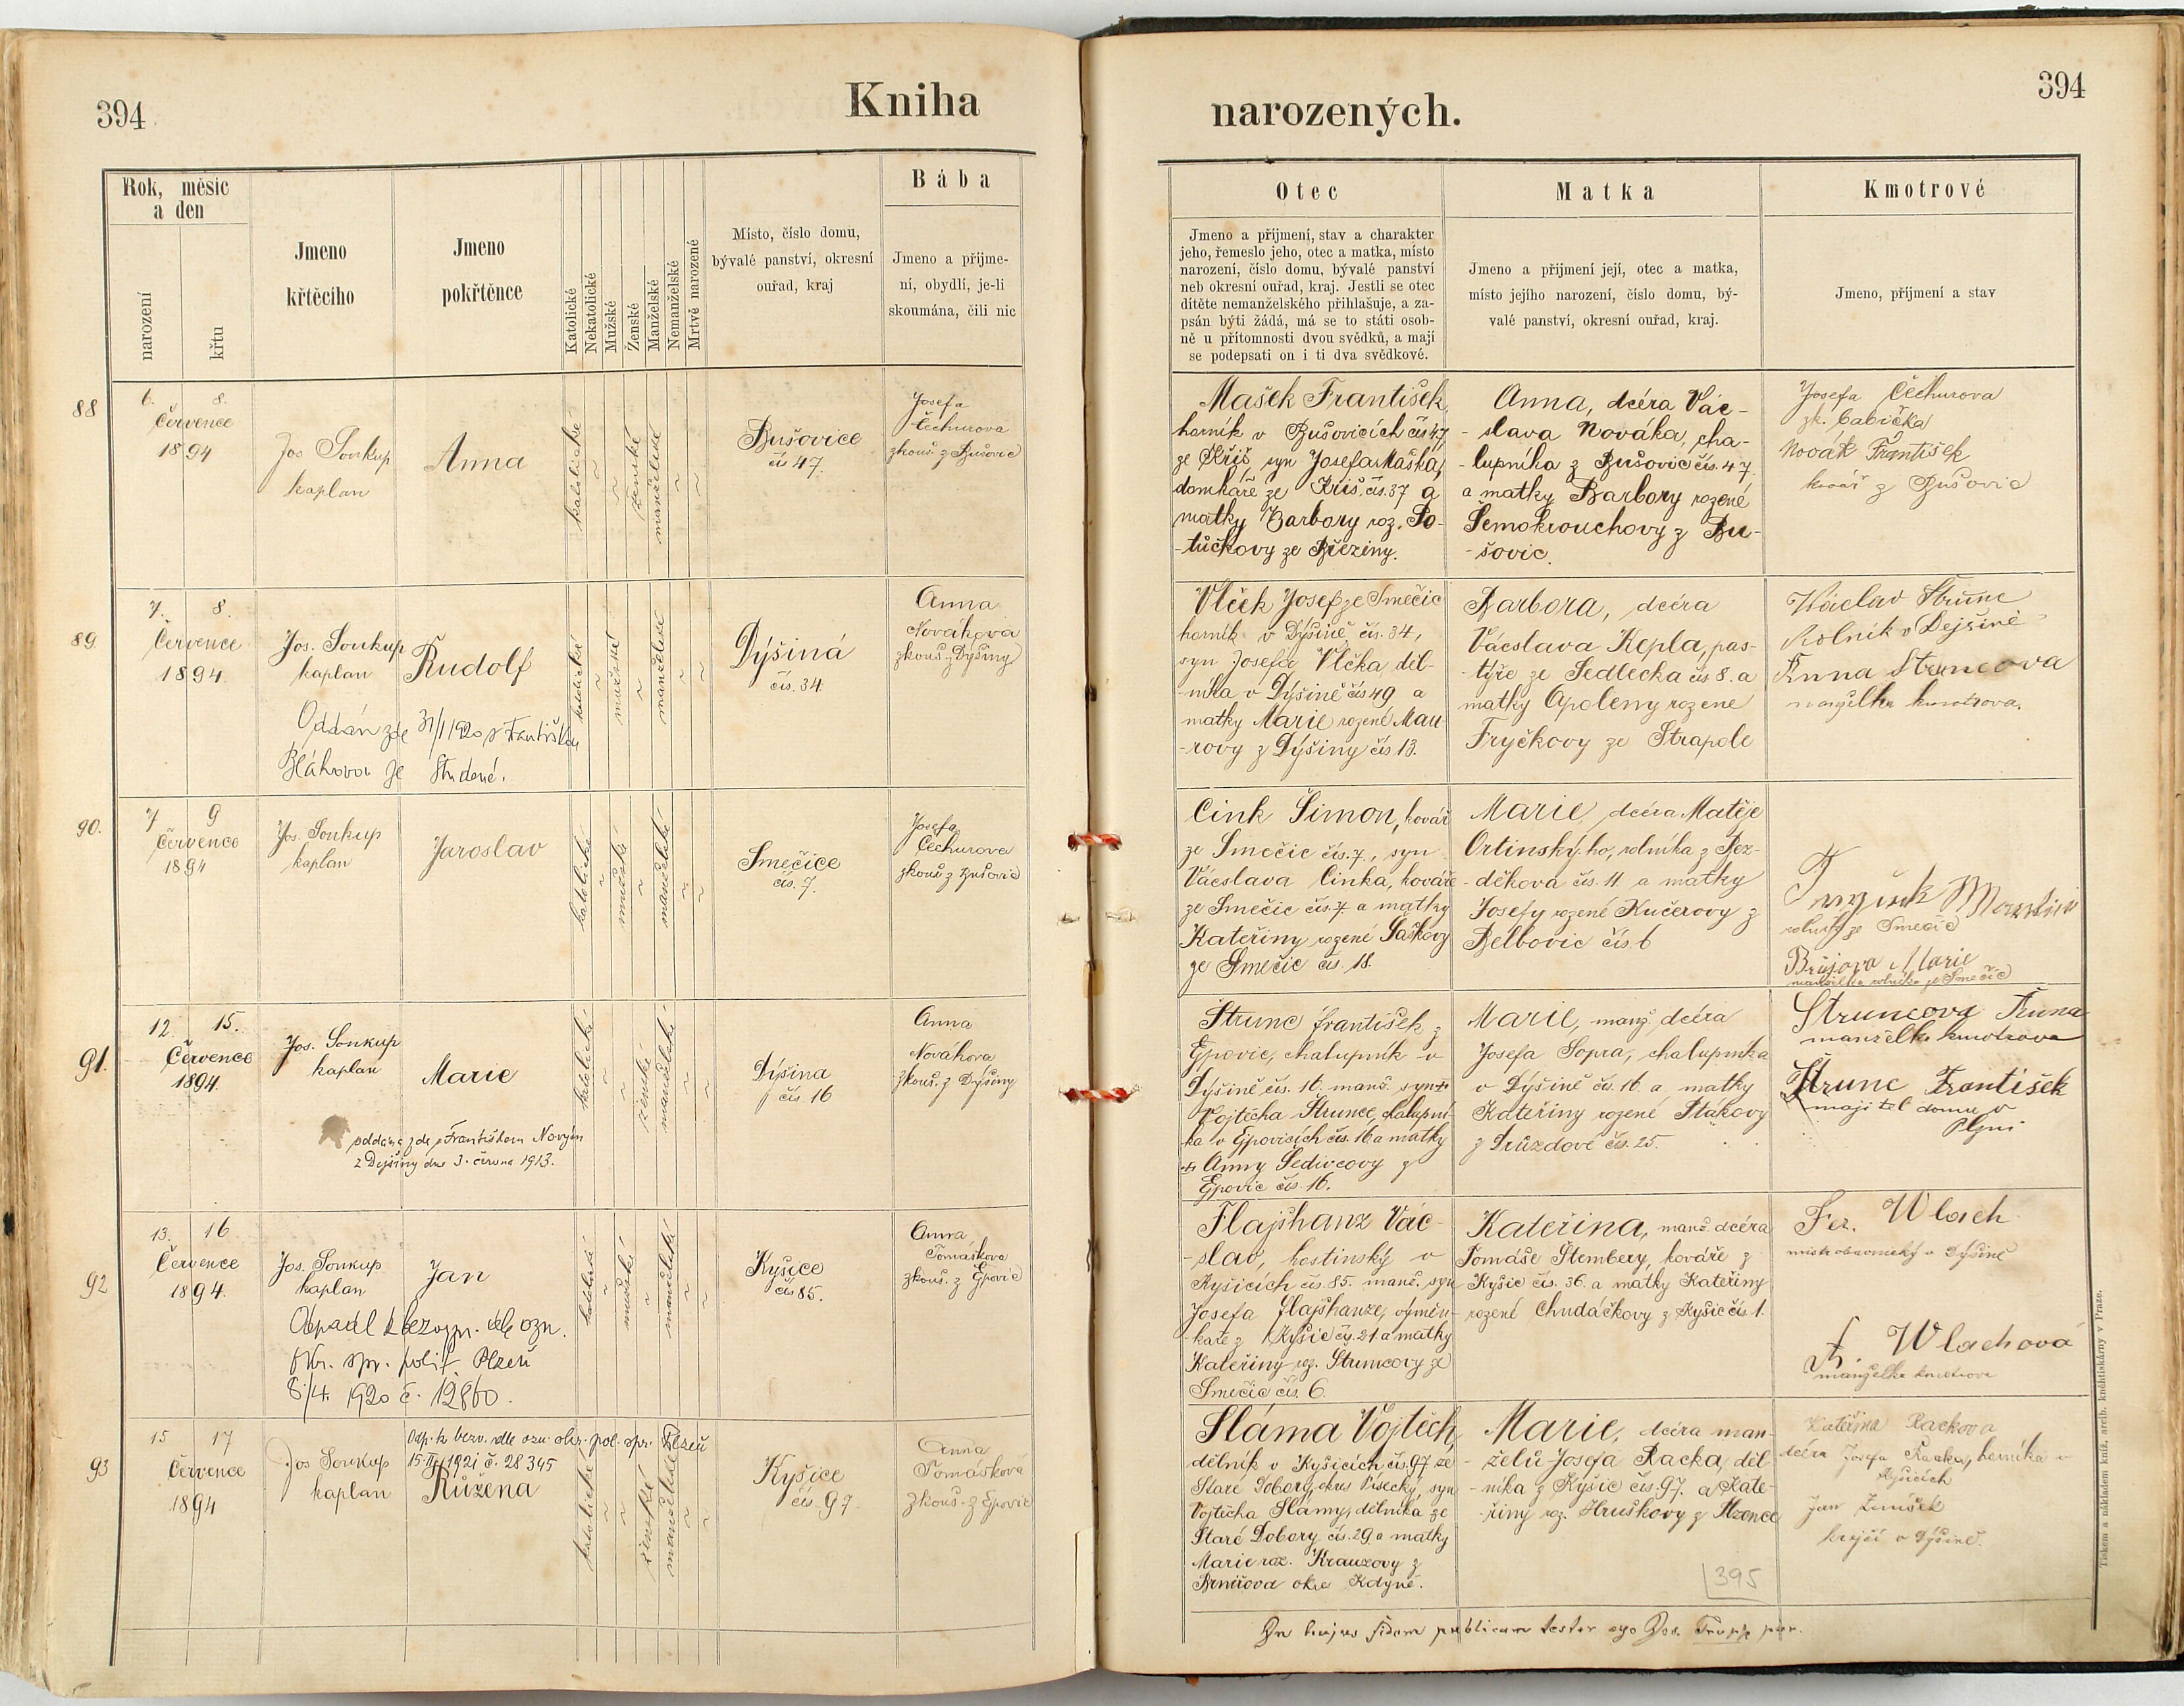 394
Kniha
narozených.
394
Rok, měsíc
a den
narození
křtu
Jmeno
křtěcího
Jmeno
pokřtěnce
Katolické
Nekatolické
Mužské
Ženské
Manželské
Nemanželské
Mrtvě narozené
Místo, číslo domu,
bývalé panství, okresní
ouřad, kraj
Bába
Jmeno a příjme-
ní, obydlí, je-li
skoumána, čili nic
Otec
Jmeno a příjmení, stav a charakter
jeho, řemeslo jeho, otec a matka, místo
narození, číslo domu, bývalé panství
neb okresní ouřad, kraj. Jestli se otec
dítěte nemanželského přihlašuje, a za-
psán býti žádá, má se to státi osob-
ně u přítomnosti dvou svědků, a mají
se podepsati on i ti dva svědkové.
Matka
Jmeno a přijmení její, otec a matka,
místo jejího narození, číslo domu, bý-
valé panství, okresní ouřad, kraj.
Kmotrové
Jmeno, příjmení a stav
88
6. 8.
Července
1894
Jos Soukup
kaplan
Anna
katolické
ženské
manželské
Bušovice
čís 47.
Josefa
Čechurova
zkouš. z Bušovic
Mašek František,
horník v Bušovicích čís 47,
ze Kříš, syn Josefa Maška,
domkáře ze Kříš, čís. 37 a
matky Barbory roz. Po-
-tůčkovy ze Březiny.
Anna, dcéra Vác-
-slava Nováka, cha-
-lupníka z Bušovic čís. 47
a matky Barbory rozené
Šemokrouchovy z Bu-
-šovic.
Josefa Čechurova
zk. babička
Novák František
kovář z Bušovic
89
7. 8.
Července
1894.
Jos. Soukup
kaplan
Rudolf
katolické
mužské
manželské
Oddán zde 31/1 1920 s Františkou
Bláhovou ze Studené.
Dýšiná
čís. 34
Anna
Novákova
zkouš. z Dýšiny
Vlček Josef ze Smečic
horník v Dýšině čís. 34,
syn Josefa Vlčka, děl-
-níka v Dýšině čís 49 a
matky Marie rozené Mau-
-rovy z Dýšiny čís 13.
Barbora, dcéra
Vácslava Kepla, pas-
-týře ze Sedlecka čís 8. a
matky Apoleny rozené
Fryčkovy ze Strapole
Václav Strunc
Rolník v Dejšině
Anna Struncova
manželka kmotrova.
90.
7 9
Července
1894
Jos. Soukup
kaplan
Jaroslav
katolické
mužské
manželské
Smečice
čís. 7.
Josefa
Čechurova
zkouš z Bušovic
Cink Šimon, kovář
ze Smečic čís. 7., syn
Vácslava Cinka, kováře
ze Smečic čís. 7 a matky
Kateřiny rozené Saškovy
ze Smečic čís. 18.
Marie, dcéra Matěje
Ortinský-ho, rolníka z Bez-
-děkova čís. 11 a matky
Josefy rozené Kučerovy z
Belbovic čís. 6
rolník ze Smečic
Marie
manželka rolníka ze Smečic
91.
12. 15.
Července
1894.
Jos. Soukup
kaplan
Marie
katolické
ženské
manželské
oddána zde s Františkem Novým
z Dejšiny dne 3. června 1913.
Dýšina
čís 16
Anna
Novákova
zkouš. z Dýšiny
Strunc František z
Ejpovic, chalupník v
Dýšině čís. 16. manž. syn
Vojtěcha Strunce, chalupní-
ka v Ejpovicích čís. 16 a matky
Anny Sedivcovy z
Ejpovic čís. 16.
Marie, manž. dcéra
Josefa Sopra, chalupníka
v Dýšině čís. 16. a matky
Kateřiny rozené Ptákovy
z Druzdové čís. 25.
Struncova Anna
manželka kmotrova
Strunc František
majitel domu v
Plzni
92
13. 16
Července
1894.
Jos. Soukup
kaplan
Jan
katolické
mužské
manželské
Odpadl k bezvyzn. dle ozn.
Okr. spr. polit Plzeň
8./4. 1920 č. 12860.
Kyšice
čís 85.
Anna
Tomáškova
zkouš. z Ejpovic
Flajshanz Vác-
-slav, hostinský v
Kyšicích čís. 85. manž. syn
Josefa Flajshanze, výměn-
-káře z Kyšic čís. 21 a matky
Kateřiny roz. Struncovy ze
Smečic čís. 6.
Kateřina, manž. dcéra
Tomáše Štembery, kováře z
Kyšic čís. 36. a matky Kateřiny
rozené Chudáčkovy z Kyšic čís 1.
Fer. Wlach
mistr obuvnický v Dýšině
A. Wlachová
manželka kmotrova
93
15 17
Července
1894
Jos Soukup
kaplan
Odp. k bezv. dle ozn. okr. pol. spr. Plzeň
15. II. 1921 č. 28345
Růžena
katolické
ženské
manželské
Kyšice
čís. 97.
Anna
Tomášková
zkouš. z Ejpovic
Sláma Vojtěch,
dělník v Kyšicích čís. 97 ze
Staré Dobory, okres Písecký, syn
Vojtěcha Slámy, dělníka ze
Staré Dobory čís. 29 a matky
Marie roz. Krauzovy z
Brnířova okr. Kdyně.
Marie, dcéra man-
-želů Josefa Racka, děl-
-níka z Kyšic čís. 97. a Kate-
-řiny roz. Hruškovy z Mzence
Kateřina Rackova
dcéra Josefa Racka, horníka v
Kyšicích
Jan Zeníšek
krejčí v Dýšině.
395
In hujus fidem publicam testor ego Jos.
Tiskem a nákladem kníž. arcib. knihtiskárny v Praze.